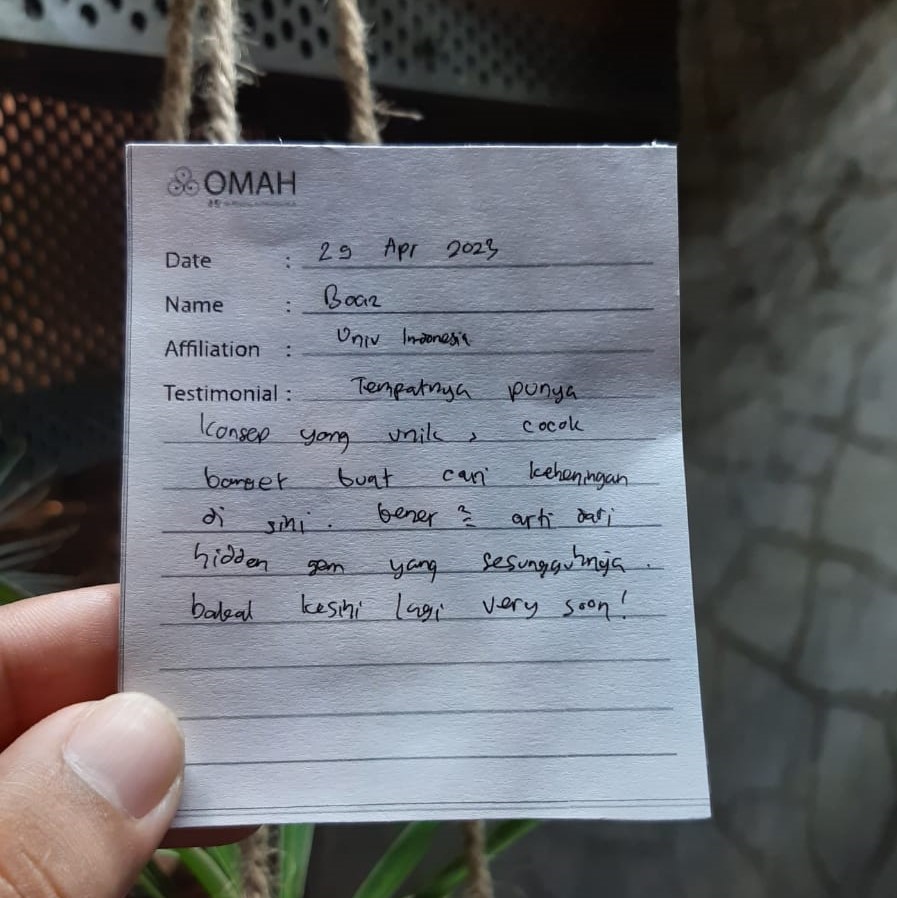 OMAH
Date : 29 Apr 2023
Name : Boaz
Affiliation : Univ Indonesia
Testimonial : Tempatnya punya
konsep yang unik, cocok
banget buat cari keheningan
di sini. bener ² arti dari
hidden gem yang sesungguhnya.
bakal kesini lagi very soon!